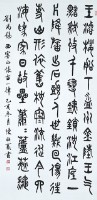 王濬樓船下益州金陵王气
黯然收千尋鐵鎖沈江底一
片降幡出石頭人世幾回傷往
事山形依舊枕寒流今逢四海
為家日故壘蕭蕭蘆荻秋
劉禹錫西塞山懷古一律